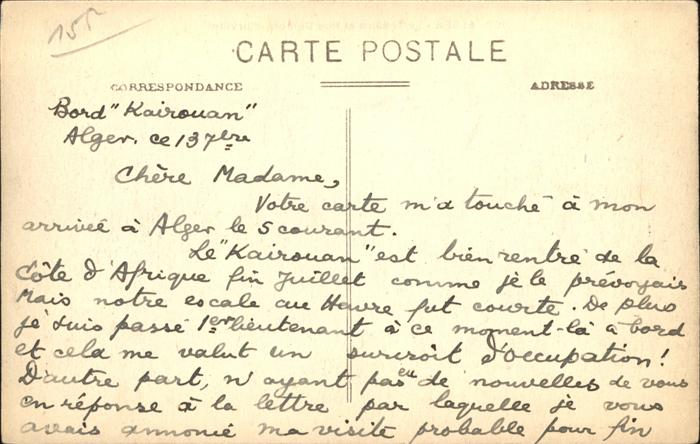 15F
CARTE POSTALE
CORRESPONDANCE
ADRESSE
Bord "Kairouan"
Alger. ce 13 7bre
Chère Madame,
Votre carte m'a touché à mon
arrivée à Alger le 5 courant.
Le "Kairouan" est bien rentré de la
Côte d'Afrique fin Juillet comme je le prévoyais
Mais notre escale au Havre fut courte. De plus
je suis passé 1er lieutenant à ce moment-là à bord
et cela me valut un surcroit d'occupation!
D'autre part, n'ayant pas eu de nouvelles de vous
en réponse à la lettre par laquelle je vous
avais annoncé ma visite probable pour fin